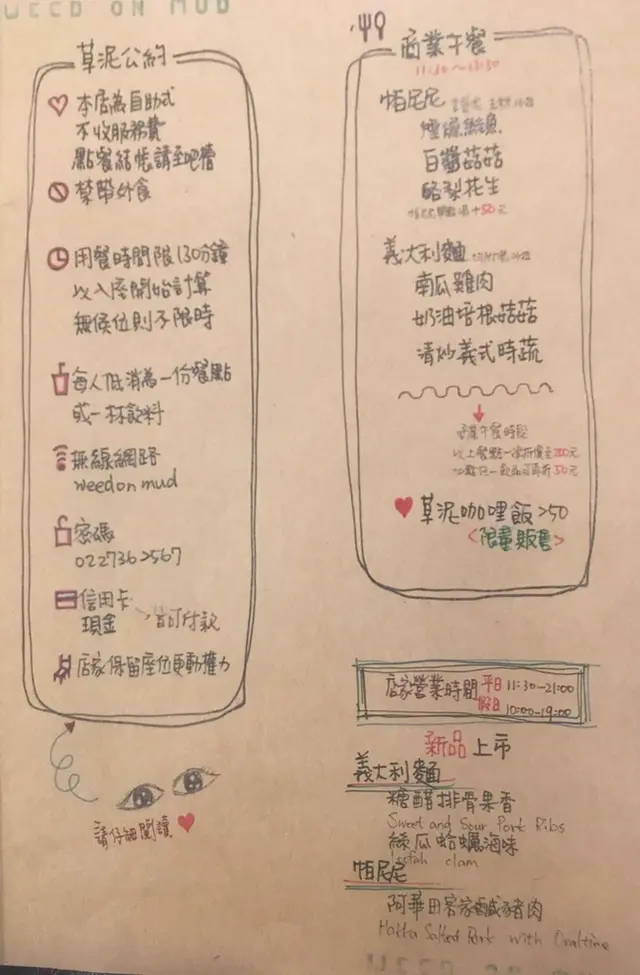 WEED ON MUD
草泥公約
本店為自助式
不收服務費
點餐結帳請至吧檯
禁帶外食
用餐時間限130分鐘
以入座開始計算
無候位則不限時
每人低消為一份餐點
或一杯飲料
無線網路
weedon mud
密碼
0227362567
信用卡
現金
皆可付款
店家保留座位更動權力
請仔細閱讀
商業午餐
11:30~13:30
帕尼尼
煙燻鮭魚
白醬菇菇
酪梨花生
+50元
義大利麵
南瓜雞肉
奶油培根菇菇
清炒義式時蔬
商業午餐時段
以上餐點一律折價至200元
加點任一飲品可再折50元
草泥咖哩飯250
<限量販售>
店家營業時間 平日 11:30-21:00
假日 10:00-19:00
新品上市
義大利麵
糖醋排骨果香
Sweet and Sour Pork Ribs
絲瓜蛤蠣海味
loofah clam
帕尼尼
阿華田客家鹹豬肉
Hakka Salted Pork with Ovaltine